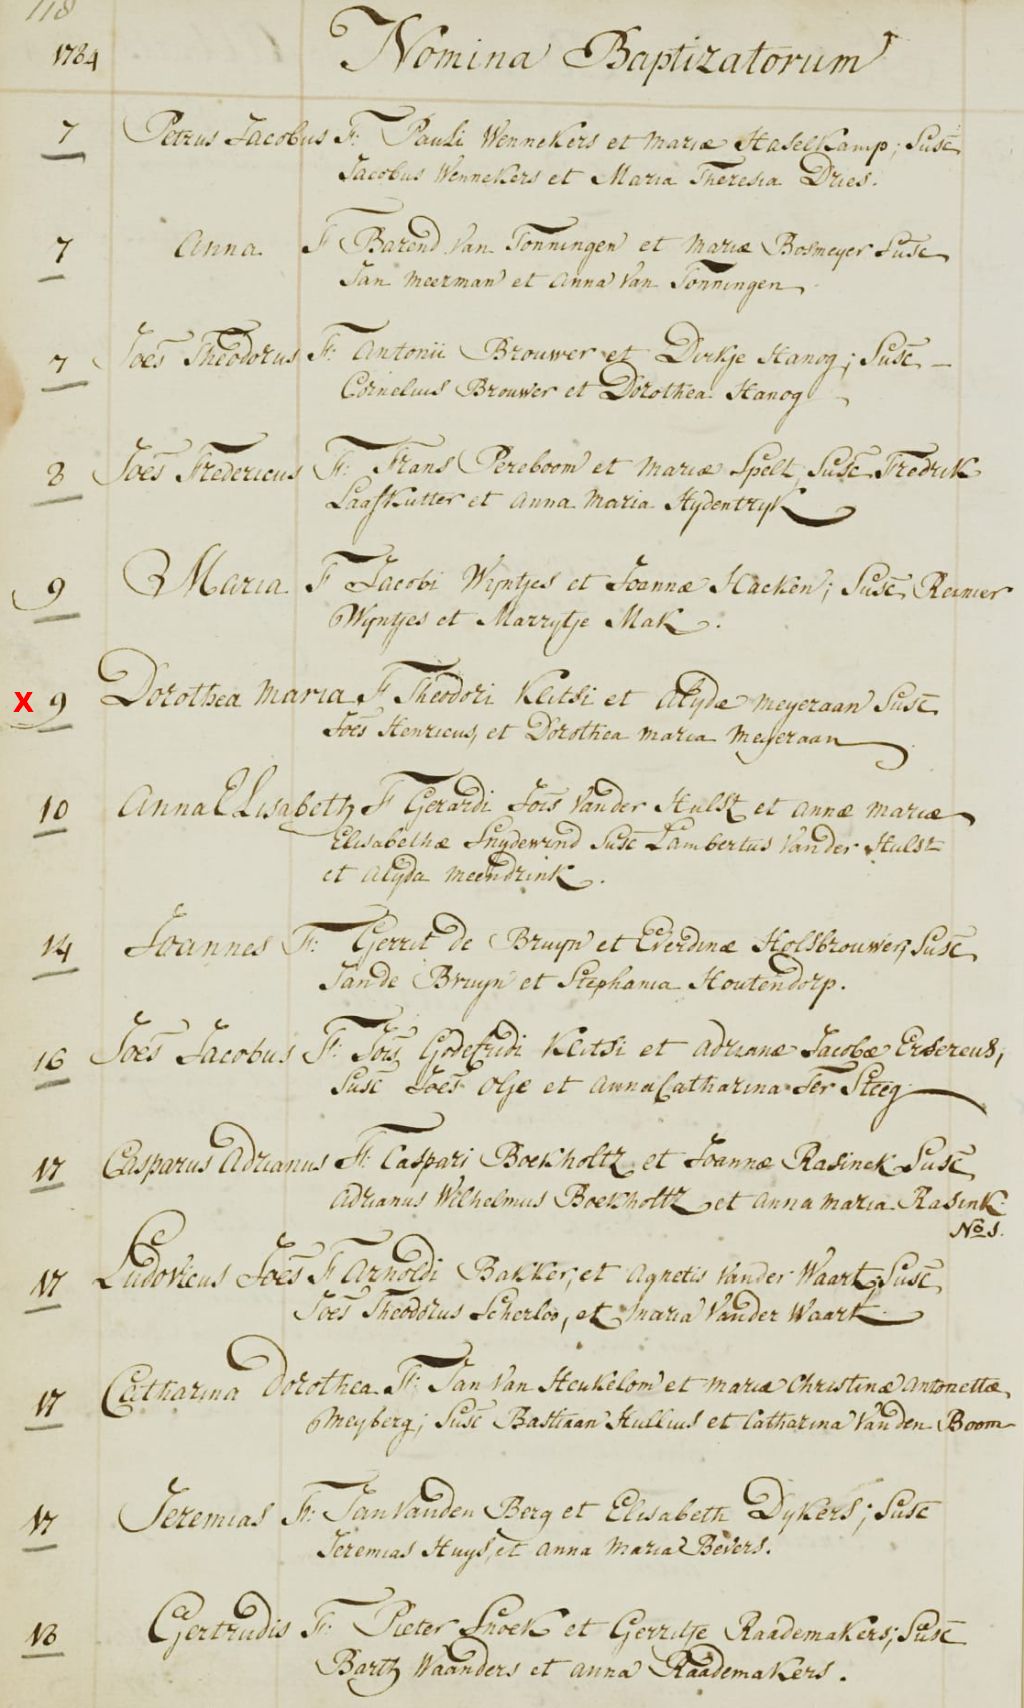 118
1784 Nomina Baptizatorum
7 Petrus Jacobus F: Pauli Wennekers et Mariæ Haselkamp; Susc
Jacobus Wennekers et Maria Theresia Dries.
7 Anna F Barend Van Tonningen et Mariæ Bosmeyer Susc
Jan Meerman et Anna Van Tonningen
7 Joēs Theodorus F: Antonii Brouwer et Dirkje Hanog; Susc
Cornelius Brouwer et Dorothea Hanog
8 Joēs Fredericus F: Frans Pereboom et Mariæ Spelt, Susc Fredrik
Laafkutter et Anna Maria Hydentryk
9 Maria F Jacobi Wijntjes et Joannæ Hacken; Susc, Reinier
Wijntjes et Marrytje Mak.
X 9 Dorothea Maria F Theodori Klitsi et Alydæ Meyeraan Susc
Joēs Henricus, et Dorothea Maria Meyeraan
10 Anna Elisabeth F Gerardi Jois Vander Hulst et Annæ Mariæ
Elisabethæ Snydewind Susc Lambertus Vander Hulst
et Alyda Meendrink.
14 Joannes F: Gerrit de Bruyn et Everdinæ Holsbrouwer, Susc
Jan de Bruyn et Stephania Houtendorp.
16 Joēs Jacobus F: Jois Godefridi Klitsi et Adrianæ Jacobæ
Susc Joēs Olje et Anna Catharina Ter Steeg
17 Casparus Adrianus F: Caspari Boekholtz et Joannæ Rasinek Susc
Adrianus Wilhelmus Boekholtz et Anna Maria Rasink
No 1.
17 Ludovicus Joēs F Arnoldi Bakker, et Agnetis Vander Waart, Susc
Joēs Theodorus Scherloo, et Maria Vander Waart
17 Catharina Dorothea F: Jan Van Heukelom et Mariæ Christinæ Antonettæ
Meyberg; Susc Bastiaan Hullius et Catharina Vanden Boom
17 Jeremias F: Jan Vanden Berg et Elisabeth Dykers; Susc
Jeremias Huys, et Anna Maria Bevers.
18 Gertrudis F: Pieter Snoek et Gerritje Raademakers; Susc
Barth Waanders et Anna Raademakers.